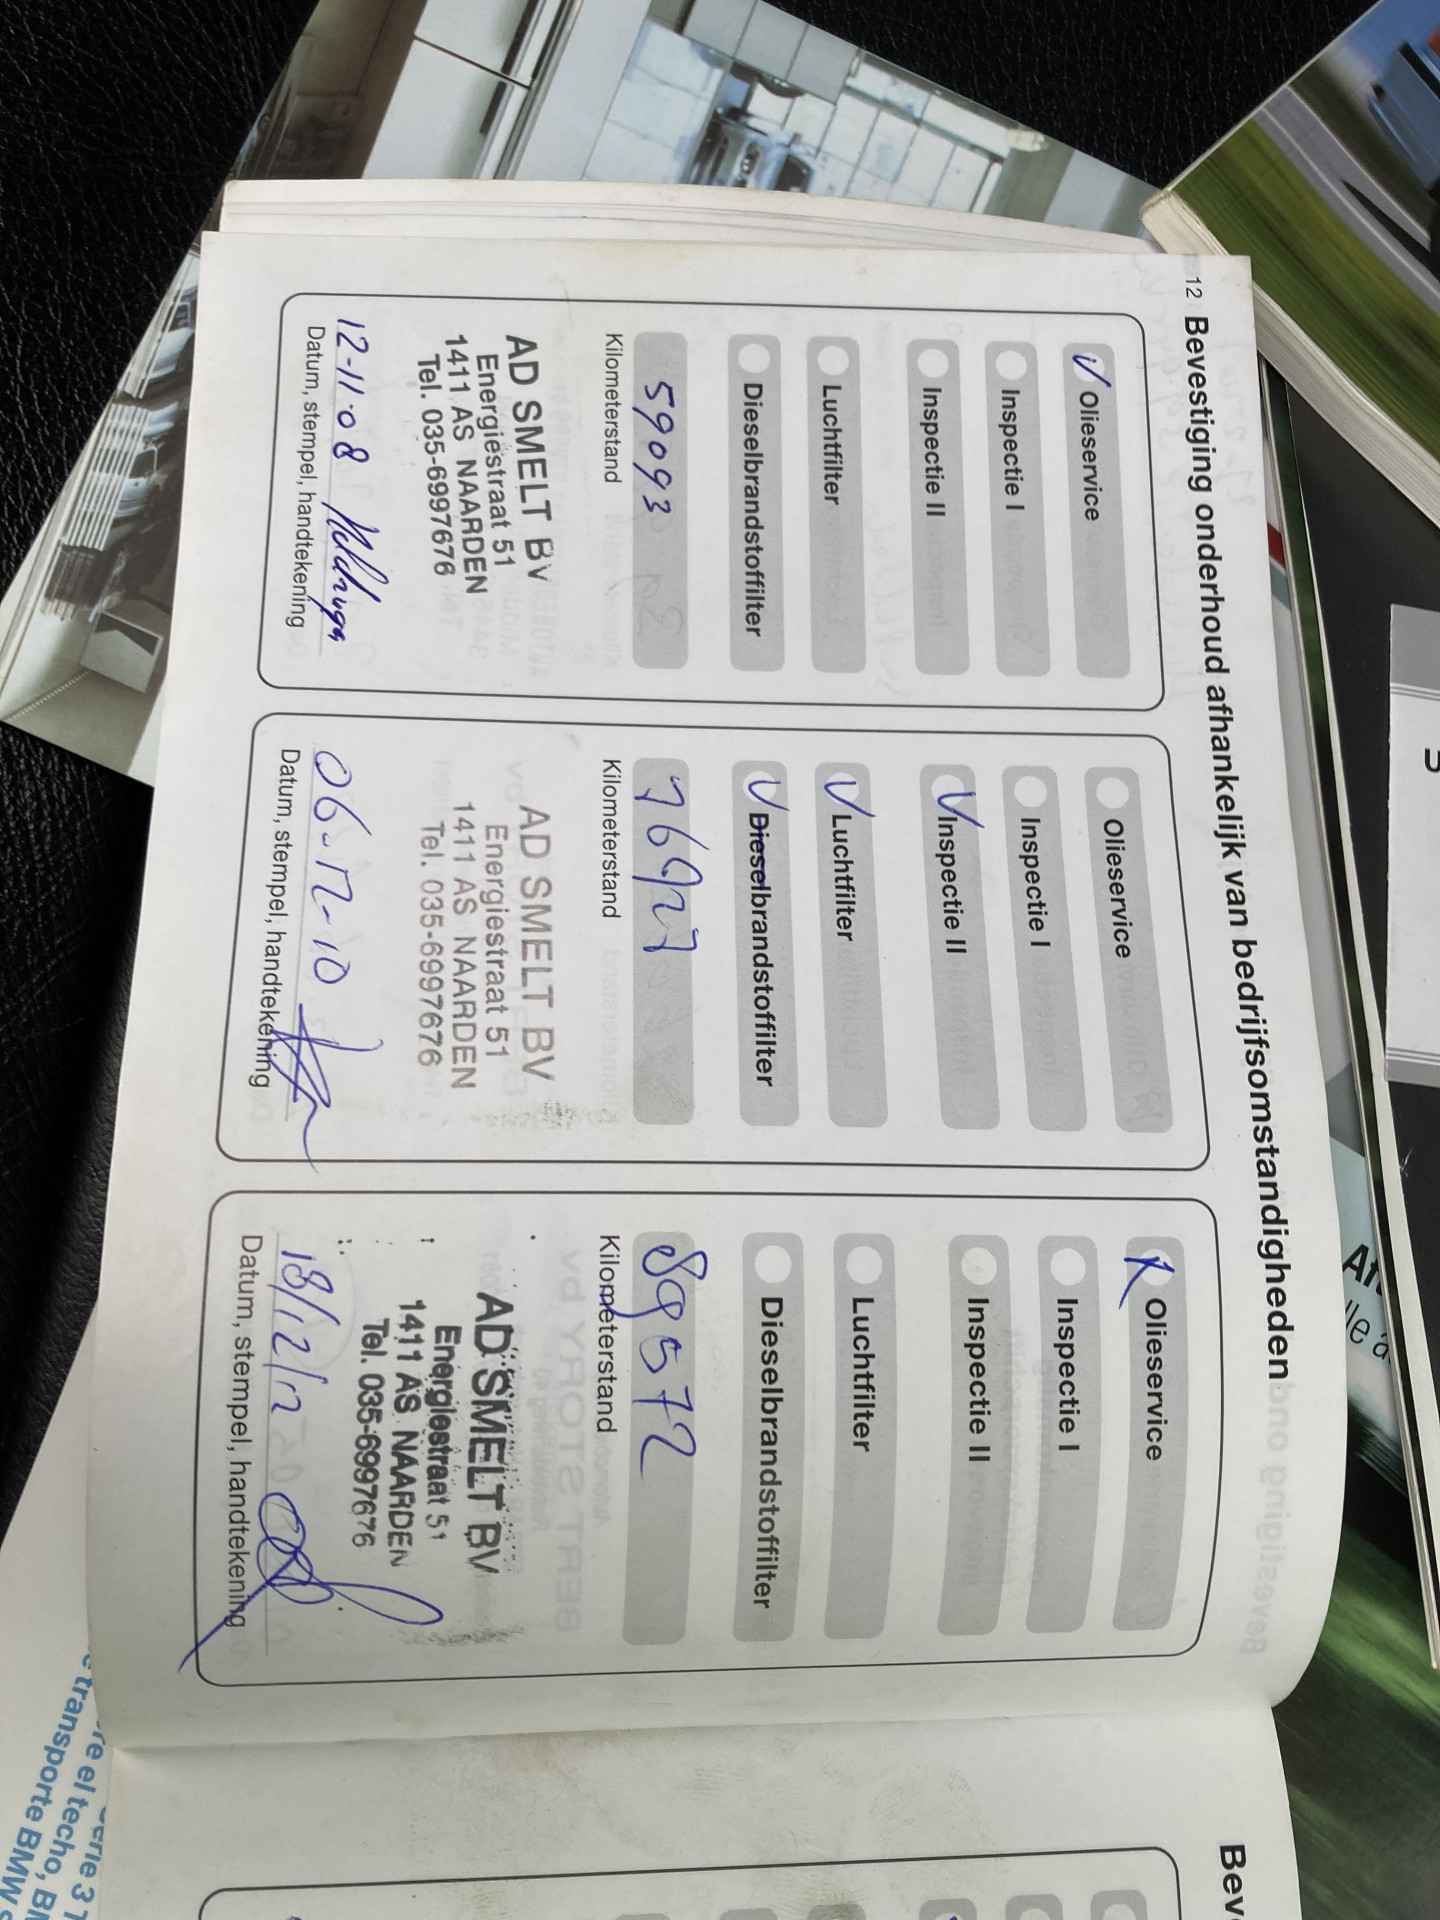 12 Bevestiging onderhoud afhankelijk van bedrijfsomstandigheden
Olieservice
Inspectie I
Inspectie II
Luchtfilter
Dieselbrandstoffilter
59093
Kilometerstand
AD SMELT BV
Energiestraat 51
1411 AS NAARDEN
Tel. 035-6997676
12-11-08
Datum, stempel, handtekening
Olieservice
Inspectie I
Inspectie II
Luchtfilter
Dieselbrandstoffilter
76927
Kilometerstand
AD SMELT BV
Energiestraat 51
1411 AS NAARDEN
Tel. 035-6997676
06-12-10
Datum, stempel, handtekening
Olieservice
Inspectie I
Inspectie II
Luchtfilter
Dieselbrandstoffilter
89572
Kilometerstand
AD SMELT BV
Energiestraat 51
1411 AS NAARDEN
Tel. 035-6997676
18/12/12
Datum, stempel, handtekening
Bev
el techo, BM
transporte BMW